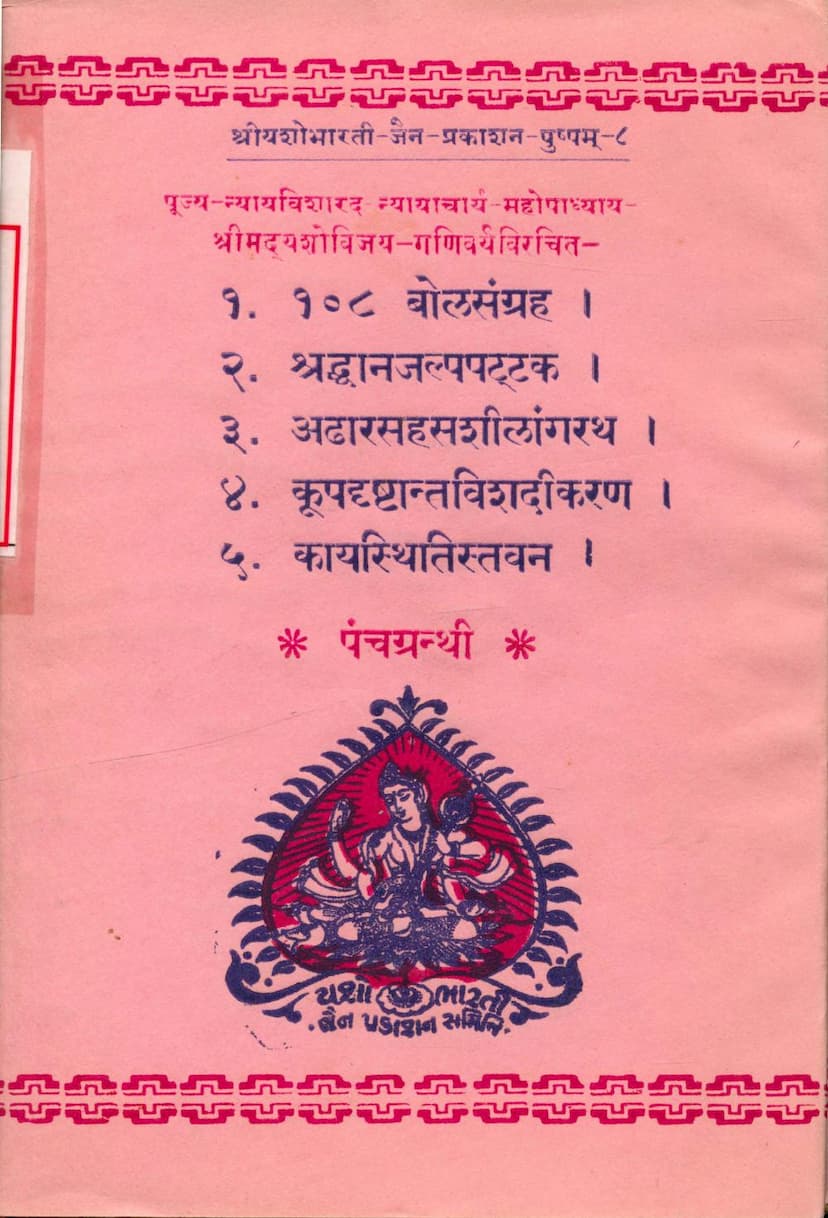 श्रीयशोभारती-जैन-प्रकाशन-पुष्पम्-८
पूज्य-न्यायविशारद-न्यायाचार्य-महोपाध्याय-
श्रीमद्यशोविजय-गणिवर्यविरचित-
१. १०८ बोलसंग्रह ।
२. श्रद्धानजल्पपट्टक ।
३. अढारसहसशीलांगरथ ।
४. कूपदृष्टान्तविशदीकरण ।
५. कायस्थितिस्तवन ।
* पंचग्रन्थी *
યશો ભારતી
જૈન પ્રકાશન સમિતિ.